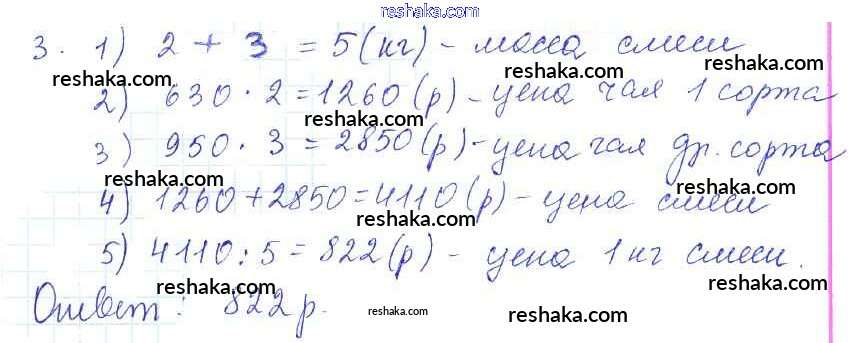 reshaka.com
3. 1) 2 + 3 = 5 (кг) - масса смеси
reshaka.com reshaka.com
2) 630 · 2 = 1260 (р) - цена чая 1 сорта
reshaka.com
3) 950 · 3 = 2850 (р) - цена чая др. сорта
reshaka.com reshaka.com
4) 1260 + 2850 = 4110 (р) - цена смеси
reshaka.com
5) 4110 : 5 = 822 (р) - цена 1 кг смеси.
reshaka.com reshaka.com
Ответ: 822 р.
reshaka.com reshaka.com